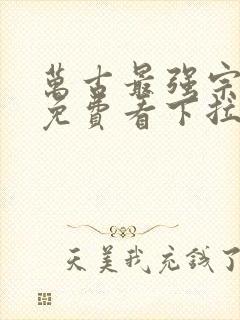 萬古最强宗
免費看下拉
天美我充錢了